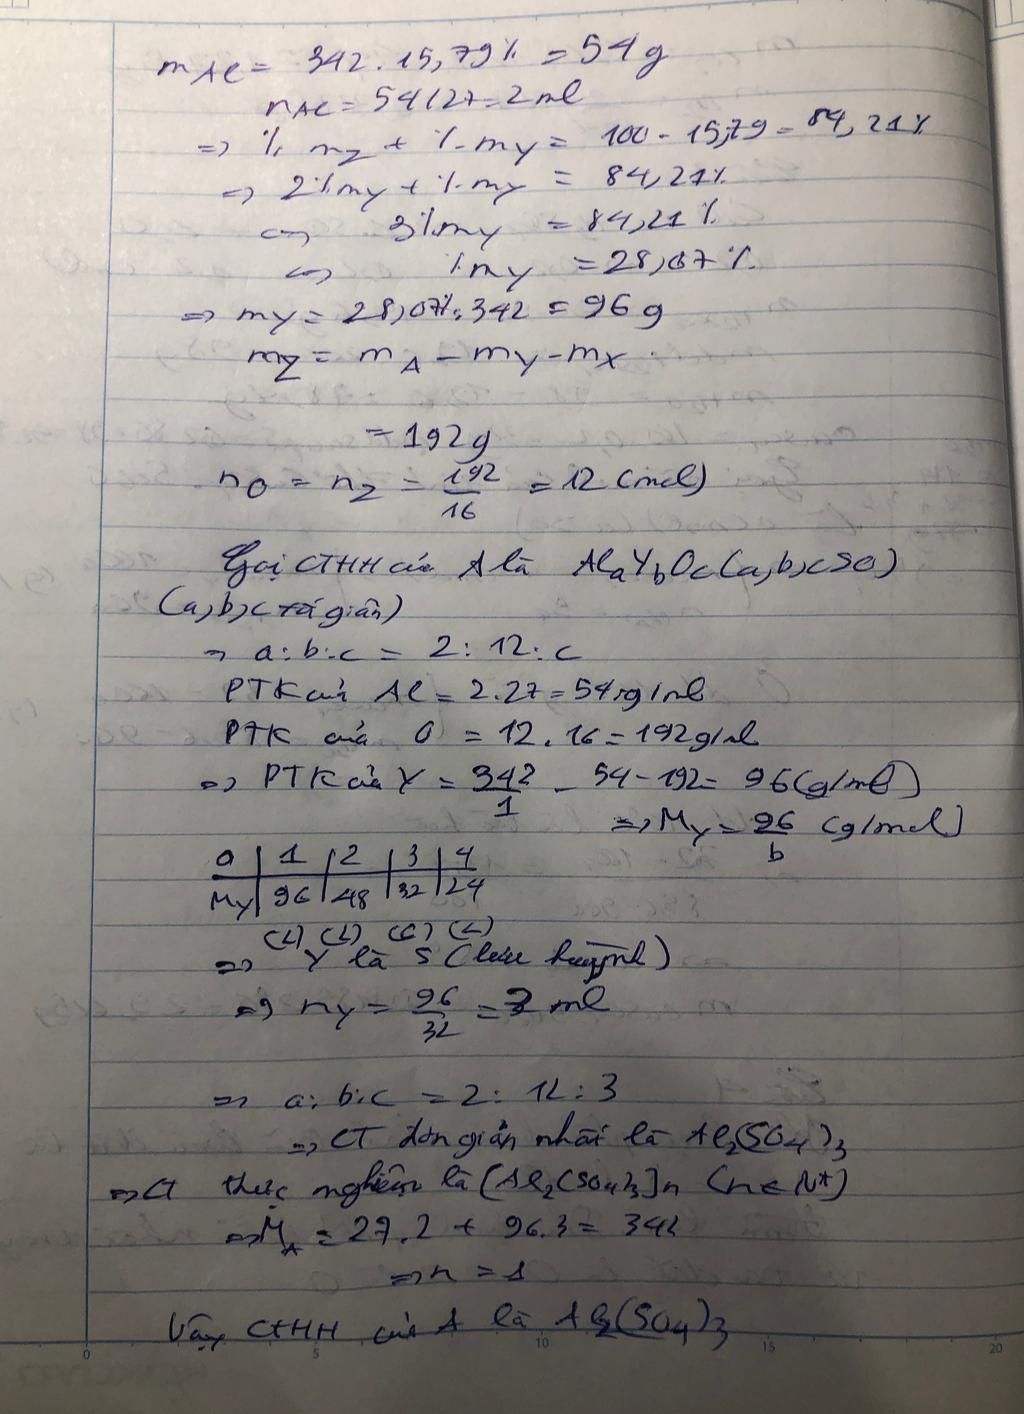 mAl = 342 . 15,79% = 54g
nAl = 54 / 27 = 2 ml
=> % mZ + % mY = 100 - 15,79 = 84,21%
=> 2%mY + % mY = 84,21%
<=> 3%mY = 84,21%
<=> %mY = 28,07%
=> mY = 28,07%.342 = 96g
mZ = mA - mY - mX
= 192g
nO = nZ = 192/16 = 12 (mol)
Gọi CTHH của A là AlaYbOc (a,b,c>0)
(a,b,c tối giản)
=> a:b:c = 2:12:c
PTK của Al = 2.27 = 54g/ml
PTK của O = 12.16 = 192g/ml
=> PTK của Y = 342/1 - 54 - 192 = 96(g/ml)
=> MY = 96/b (g/mol)
a | 1 | 2 | 3 | 4
MY | 96 | 48 | 32 | 24
(L) (L) (C) (L)
=> Y là S (lưu huỳnh)
=> nY = 96/32 = 3 ml
=> a:b:c = 2:12:3
=> CT đơn giản nhất là Al2(SO4)3
=> CT thực nghiệm là [Al2(SO4)3]n (n ∈ N*)
=> MA = 27.2 + 96.3 = 342
=> n = 1
Vậy CTHH của A là Al2(SO4)3
0 5 10 15 20